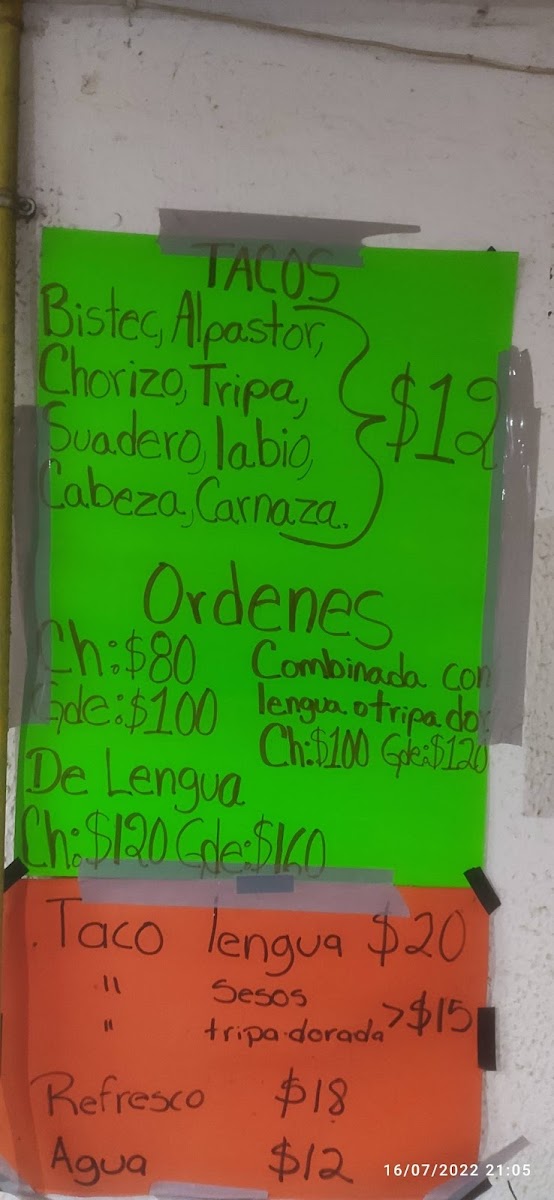 TACOS
Bistec, Alpastor,
Chorizo, Tripa,
Suadero, labio,
Cabeza, Carnaza.
$12
Ordenes
Ch:$80
Gde:$100
Combinada con
lengua o tripa do
Ch:$100 Gde:$120
De Lengua
Ch:$120 Gde:$160
Taco lengua $20
" sesos
" tripa dorada >$15
Refresco $18
Agua $12
16/07/2022 21:05